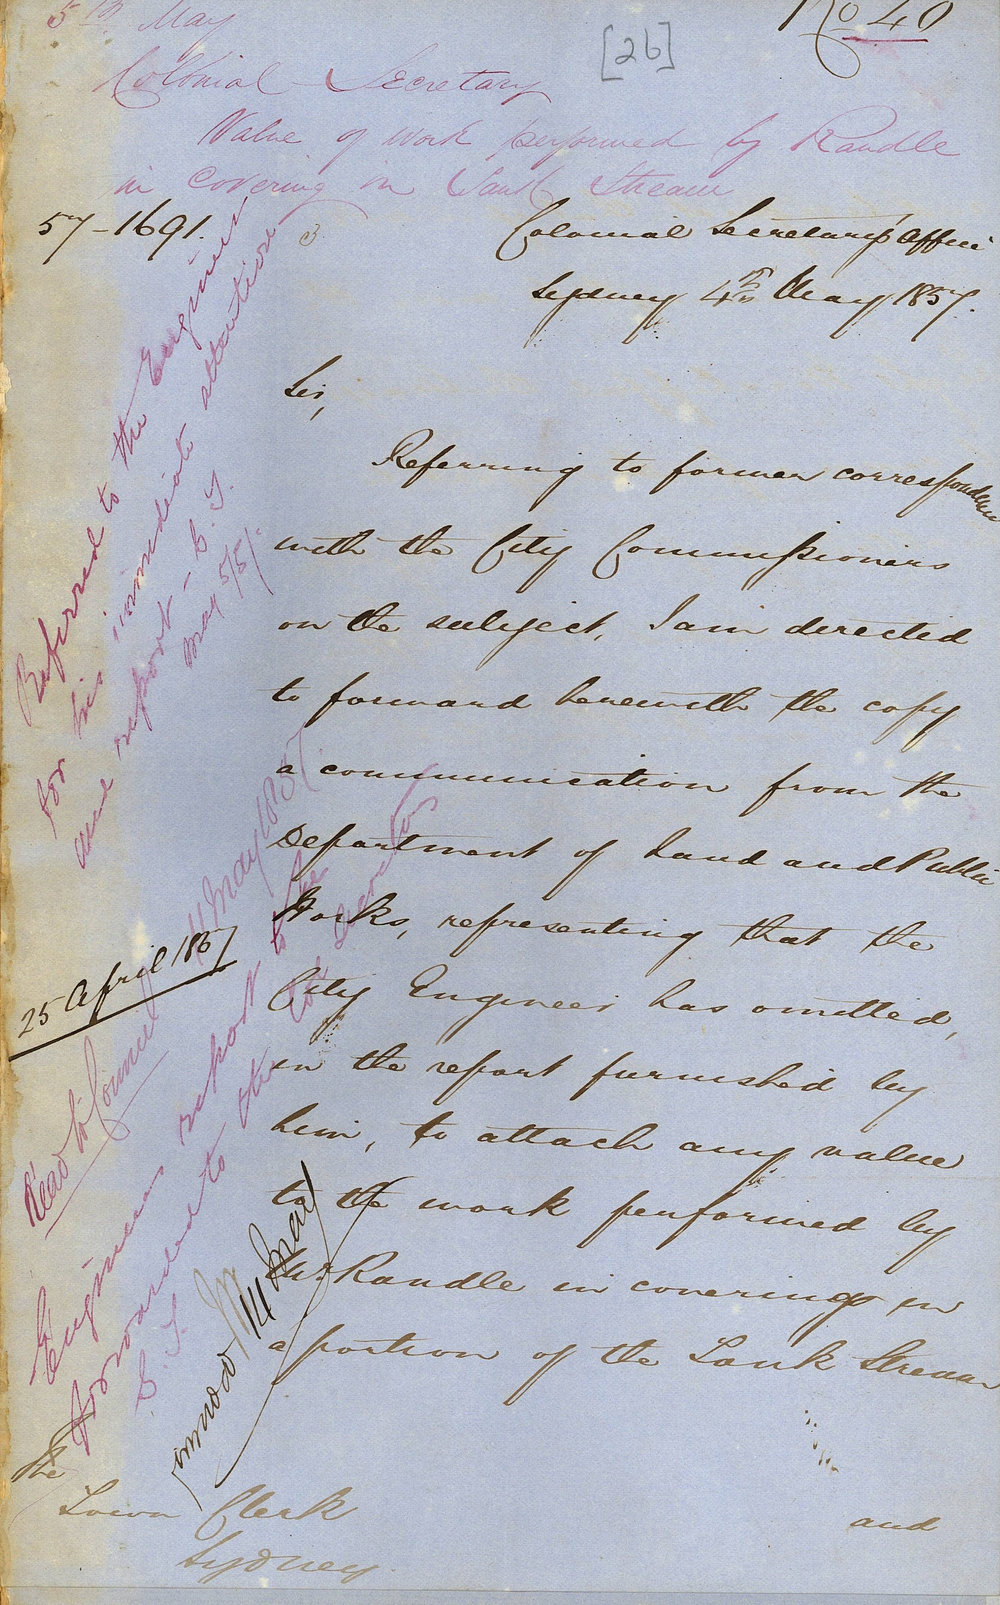 5th May
No 40
[26]
Colonial Secretary
Value of work performed by Randle
in covering in Tank Stream
57-1691.
Colonial Secretary's Office
Sydney 4th May 1857.
Sir,
Referring to former correspondence
with the City Commissioners
on the subject, I am directed
to forward herewith the copy
a communication from the
Department of Land and Public
Works, representing that the
City Engineer has omitted,
in the report furnished by
him, to attach any value
to the work performed by
Mr. Randle in covering in
a portion of the Tank Stream
and
The
Town Clerk
Sydney
Referred to the Engineer
for his immediate attention
and report - C. T.
May 5/57.
25 April 1857
Read to Council 11 May 1857
Engineers report to be
forwarded to the Col Secretary
C. T.
11 May